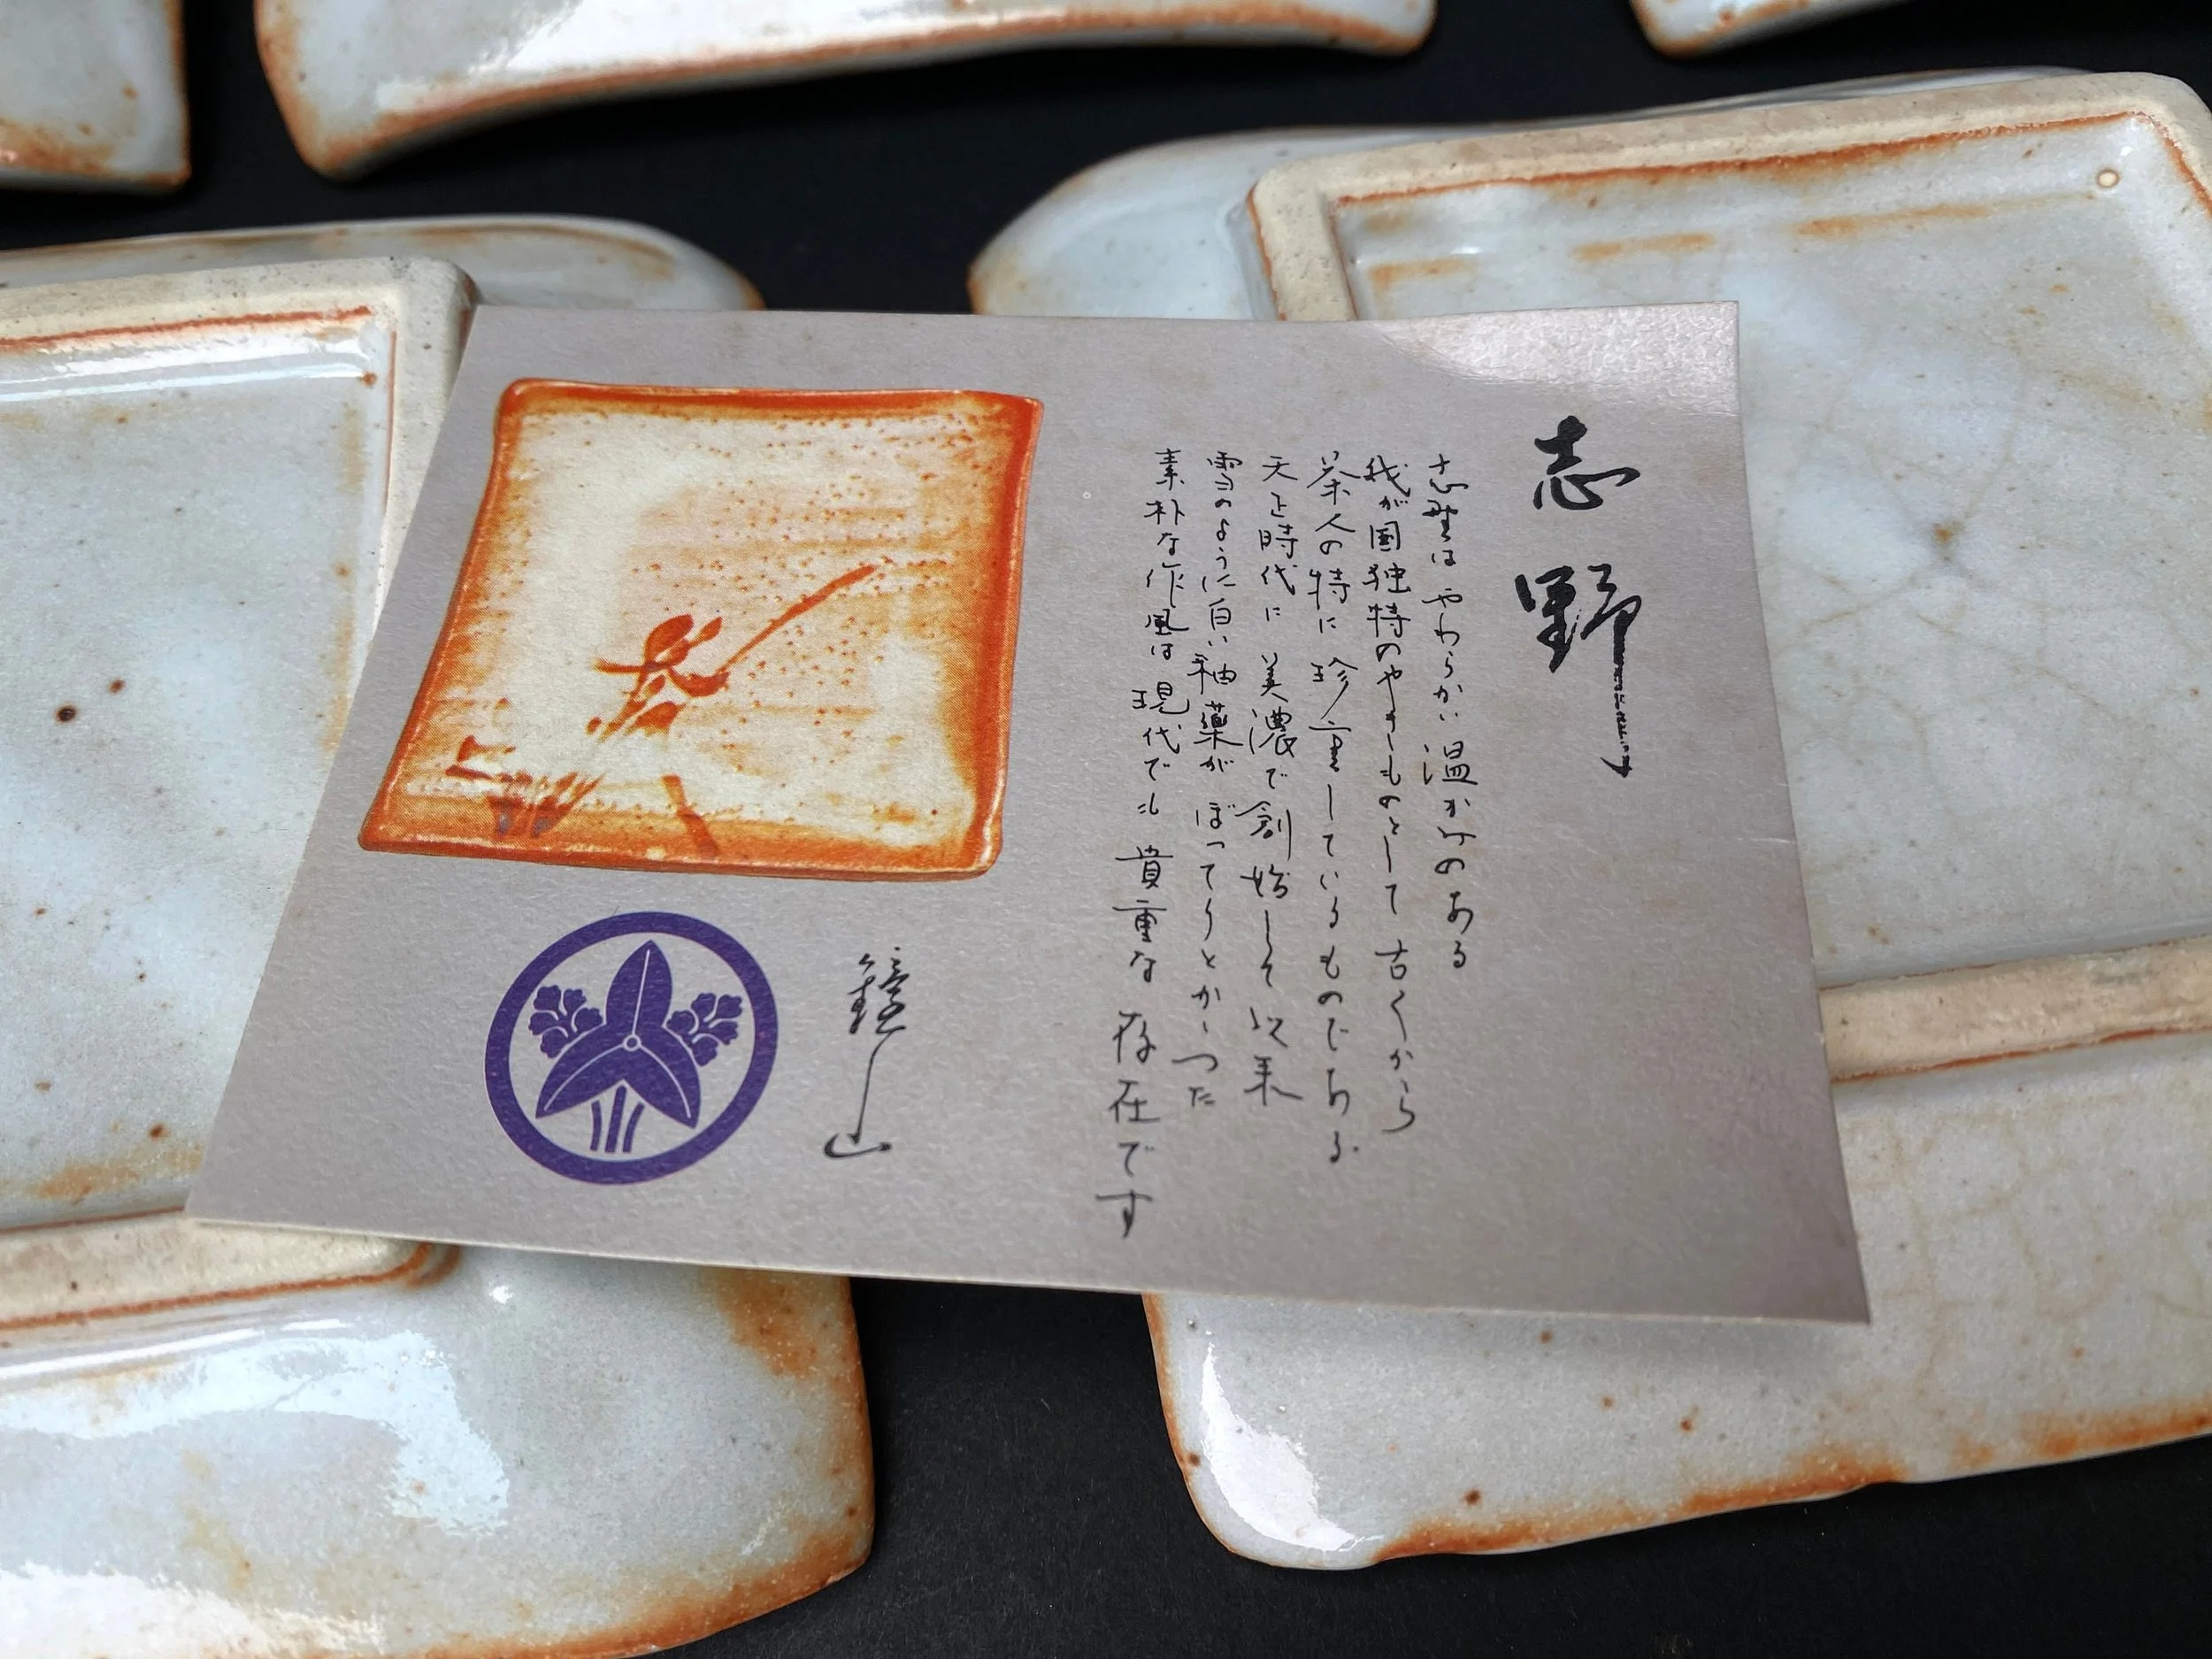 志野
志野はやわらかい温かみのある
我が国独特のやきものとして古くから
茶人の特に珍重しているものである
天正時代に美濃で創始して以来
雪のように白い釉薬がぼってりとかかった
素朴な作風は現代でも貴重な存在です
鏡山